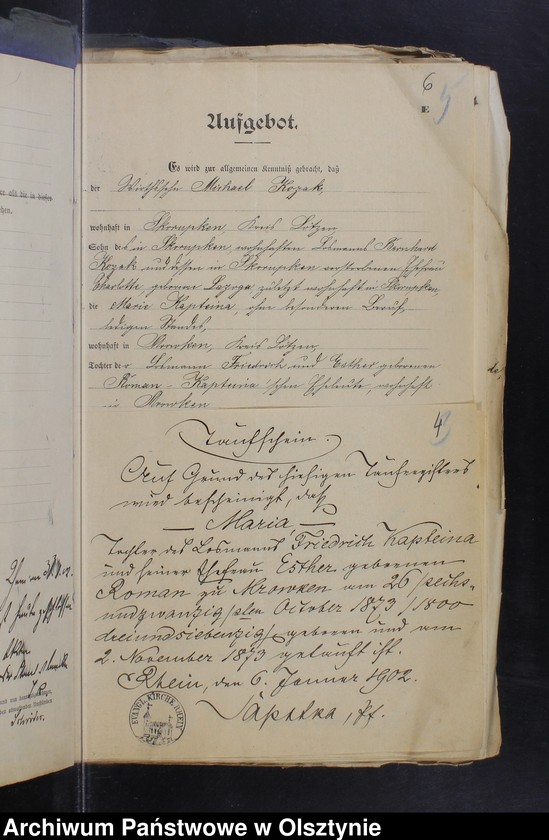 6
5
E
Aufgebot.
Es wird zur allgemeinen Kenntniß gebracht, daß
der Wirthssohn Michael Kozak,
wohnhaft in Skompken, Kreis Lötzen,
Sohn des in Skompken wohnhaften Losmanns Bernhard
Kozak und dessen in Skompken verstorbenen Ehefrau
Charlotte, geborene Lazoga, zuletzt wohnhaft in Skompken,
die Marie Kapteina, ohne besonderen Beruf,
ledigen Standes,
wohnhaft in Mrowken, Kreis Lötzen,
Tochter der Losmann Friedrich und Esther geborenen
Roman-Kapteina'schen Eheleute, wohnhaft
in Mrowken
4
Taufschein.
Auf Grund des hiesigen Taufregisters
wird bescheinigt, daß
— Maria —
Tochter des Losmanns Friedrich Kapteina
und seiner Ehefrau Esther geborenen
Roman zu Mrowken am 26/sechs-
undzwanzigsten October 1873/1800
dreiundsiebenzig/ geboren und am
2. November 1873 getauft ist.
Rhein, den 6. Januar 1902.
Pf.
EVANGL. KIRCHE RHEIN
Archiwum Państwowe w Olsztynie